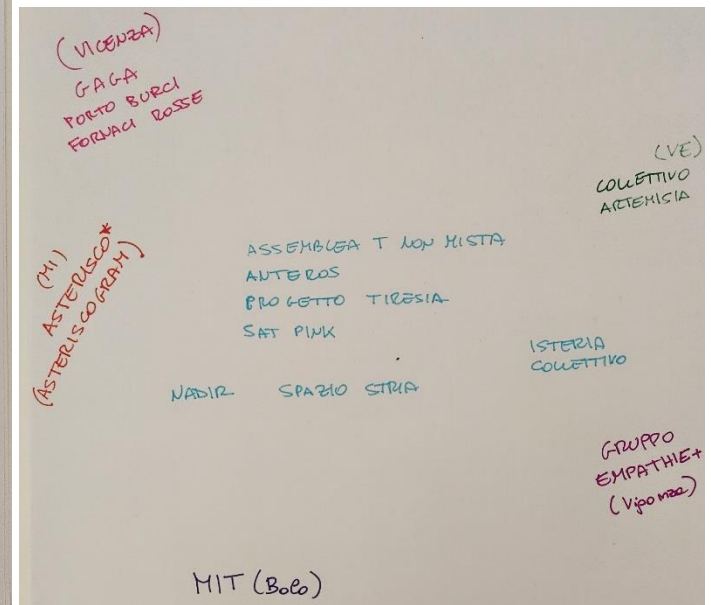 (VICENZA)
GAGA
PORTO BURCI
FORNACI ROSSE
(VE)
COLLETTIVO
ARTEMISIA
(MI)
ASTERISCO*
(ASTERISCOGRAM)
ASSEMBLEA T NON MISTA
ANTEROS
PROGETTO TIRESIA
SAT PINK
ISTERIA
COLLETTIVO
NADIR SPAZIO STRIA
GRUPPO
EMPATHIE+
MIT (BOLO)